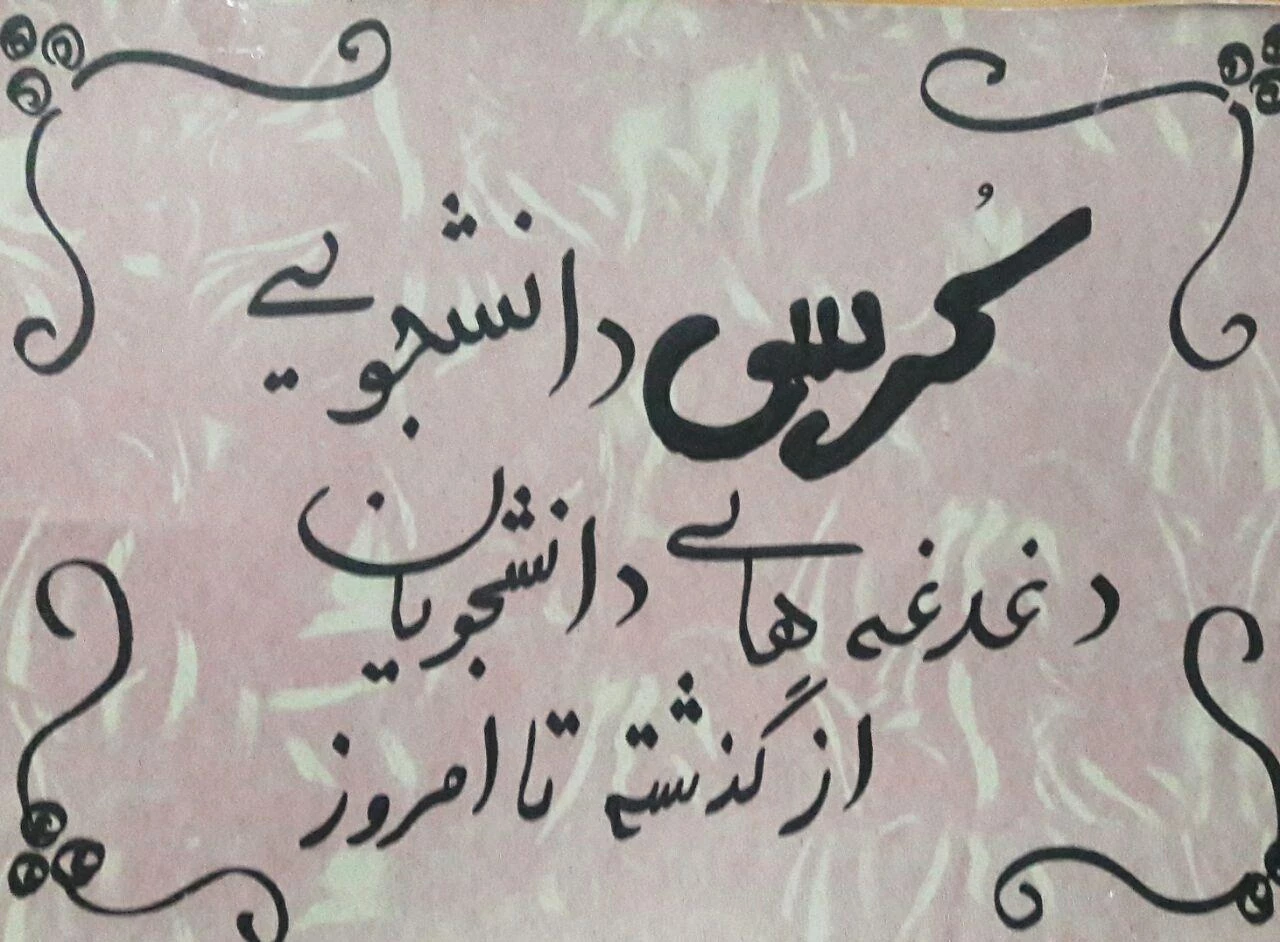 کُرسی دانشجویی
دغدغه های دانشجویان
از گذشته تا امروز